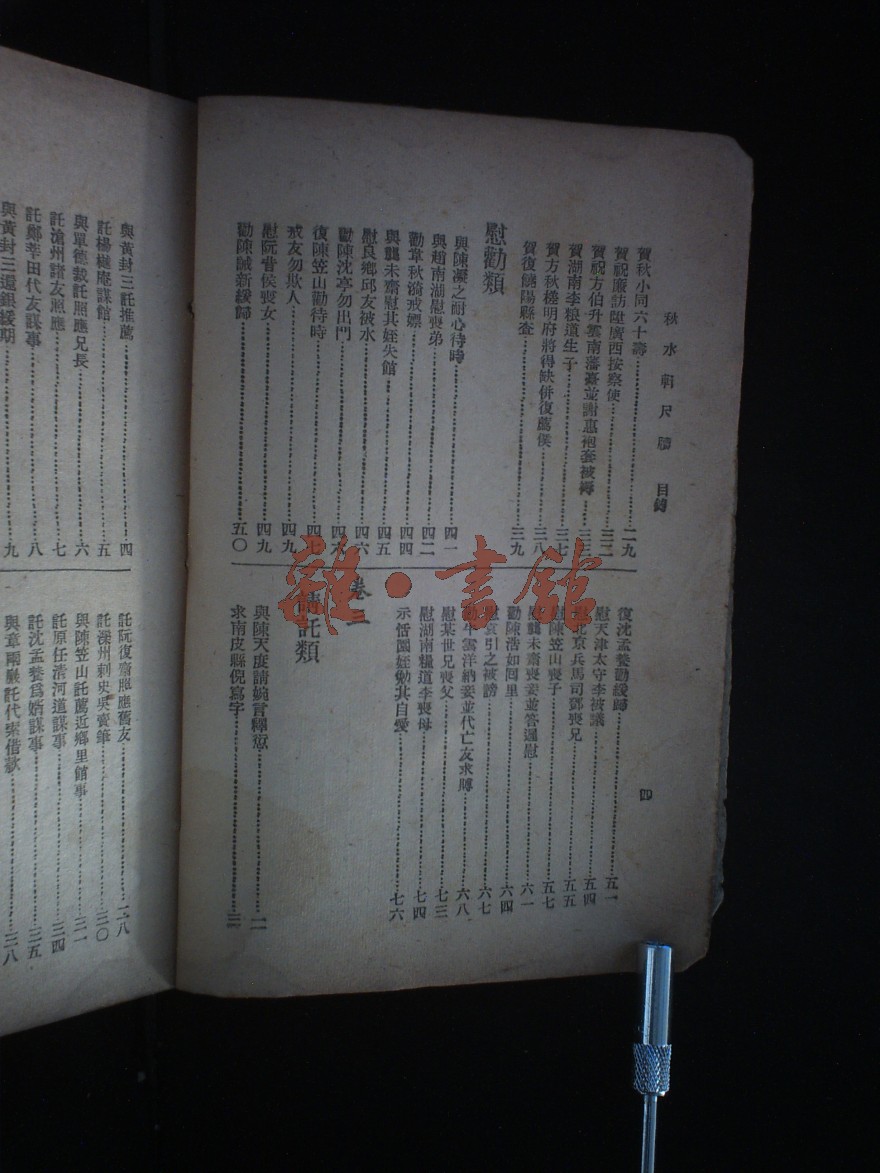 秋水軒尺牘 目錄
四
賀秋小同六十壽 二九
賀祝廉訪陞廣西按察使 三二
賀祝方伯升雲南藩臺並謝惠袍套被褥 三三
賀湖南李粮道生子 三七
賀方秋槎明府將得缺併復薦僕 三八
賀復饒陽縣查 三九
慰勸類
與陳凝之耐心待時 四一
與趙南湖慰喪弟 四二
勸韋秋漪戒嫖 四四
與龔未齋慰其姪失館 四五
慰良鄉邱友被水 四六
勸陳沈亭勿出門 四六
復陳笠山勸待時 四七
戒友勿欺人 四九
慰阮昔侯喪女 四九
勸陳誠新緩歸 五〇
復沈孟養勸緩歸 五一
慰天津太守李被議 五四
慰北京兵馬司鄧喪兄 五五
慰陳笠山喪子 五七
慰龔未齋喪妾並答遲慰 六一
勸陳浩如回里 六四
慰袁引之被謗 六七
勸牛雲洋納妾並代亡友求賻 六八
慰某世兄喪父 七三
慰湖南糧道李喪母 七四
示恬園姪勉其自愛 七六
卷三
請託類
與陳天度請婉言釋愆 二
求南皮縣倪寫字
與黃封三託推薦 四
託楊樾庵謀館 五
與單德栽託照應兄長 六
託滄州諸友照應 七
託鄭莘田代友謀事 八
與黃封三還銀緩期 九
託阮復齋照應舊友 二八
託深州刺史吳賣筆 三〇
與陳笠山託薦近鄉里館事 三一
託原任清河道謀事 三四
託沈孟養爲婿謀事 三五
與章爾嚴託代索借款 三八